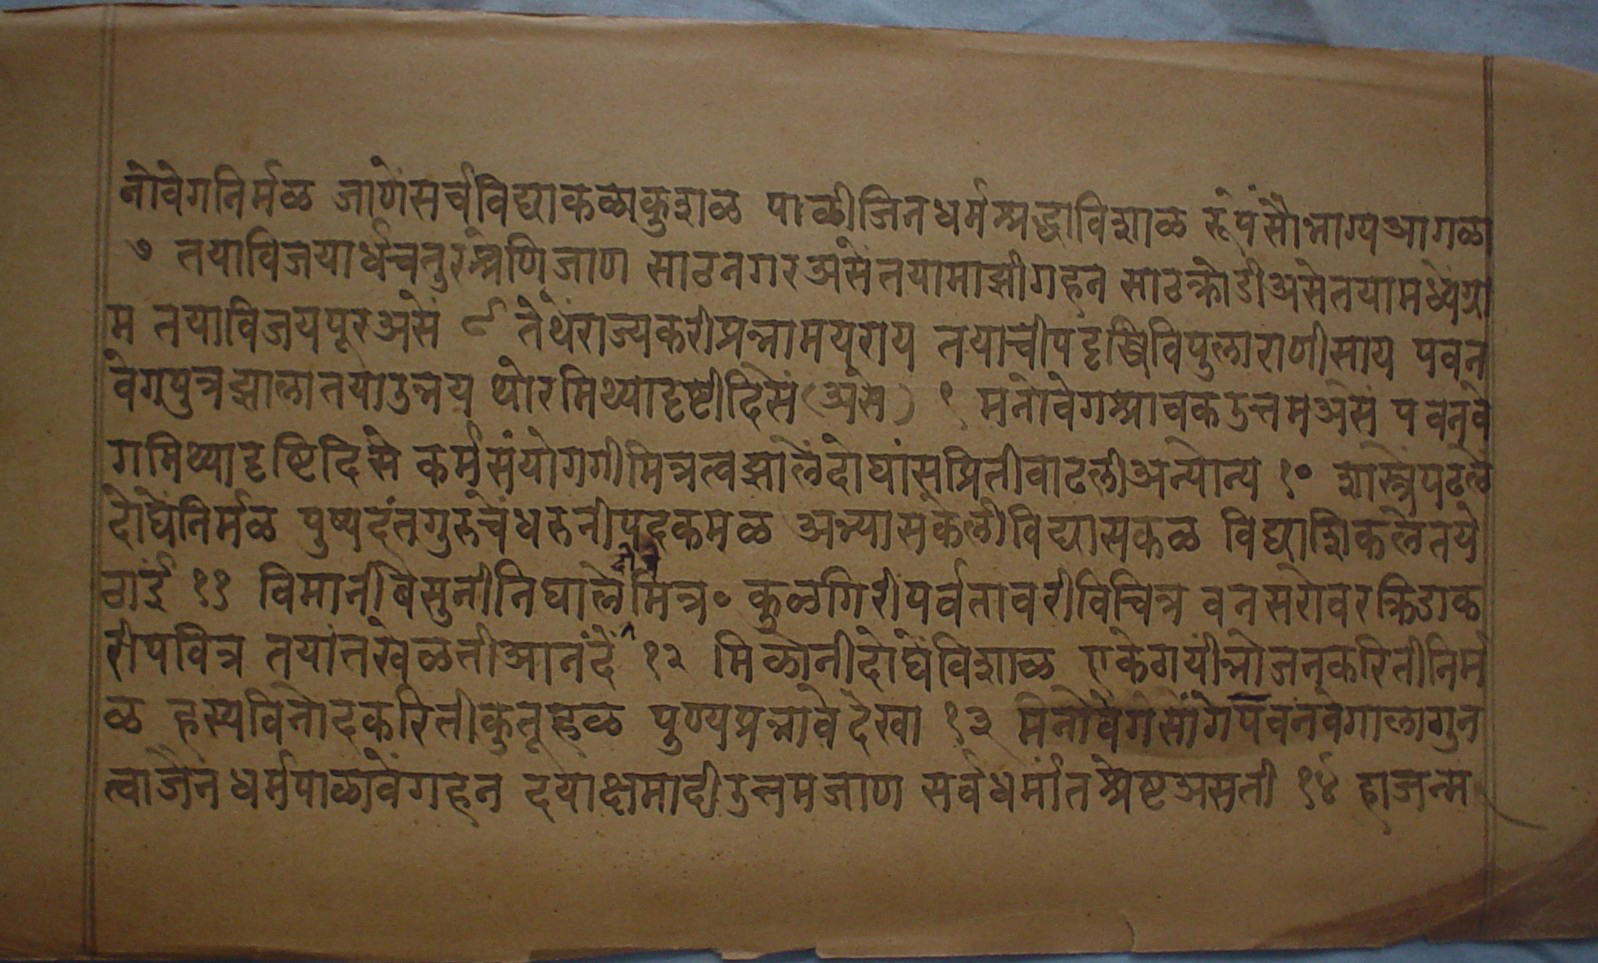 नोवेगनिर्मळ जाणेंसर्वविद्याकळाकुशळ पाळीजिनधर्मश्रद्धाविशाळ रूपंसौभाग्यआगळा
७ तयाविजयार्धचतुरश्रेणिजाण साठनगरअसेतयामाझीगहन साठक्रोडीअसेतयामध्येंग्रा
म तयाविजयपूरअसें ८ तेथेंराज्यकरीप्रभामयूराय तयाची विपुलाराणीसाय पवन
वेगपुत्रझालातयाउभय थोरमिथ्यादृष्टीदिसे (असे) ९ मनोवेगश्रावकउत्तमअसे पवनवे
गमिथ्यादृष्टिदिसे कर्मसंयोगगीमित्रत्वझालेंदोघांसप्रितीवाढलीअन्योन्य १० शास्त्रेंपढले
दोघेनिर्मळ पुष्पदंतगुरुचेंधरुनीपदकमळ अभ्यासकेलीविद्यासकळ विद्याशिकलेतये
ठाई ११ विमानीबैसुनीनिघालेमित्र॰ कुळगिरीपर्वतावरीविचित्र वनसरोवरक्रिडाक
रीपवित्र तयांतखेळतीआनंदें १२ मिळोनीदोघेंविशाळ एकेठायींभोजनकरितीनिर्म
ळ हस्यविनोदकरितीकुतूहळ पुण्यप्रभावेदेखा १३ मनोवेगसांगेपवनवेगालागुन
त्वाजैनधर्मपाळावेंगहन दयाक्षमादीउत्तमजाण सर्वधर्मांतश्रेष्टअसती १४ हाजन्म